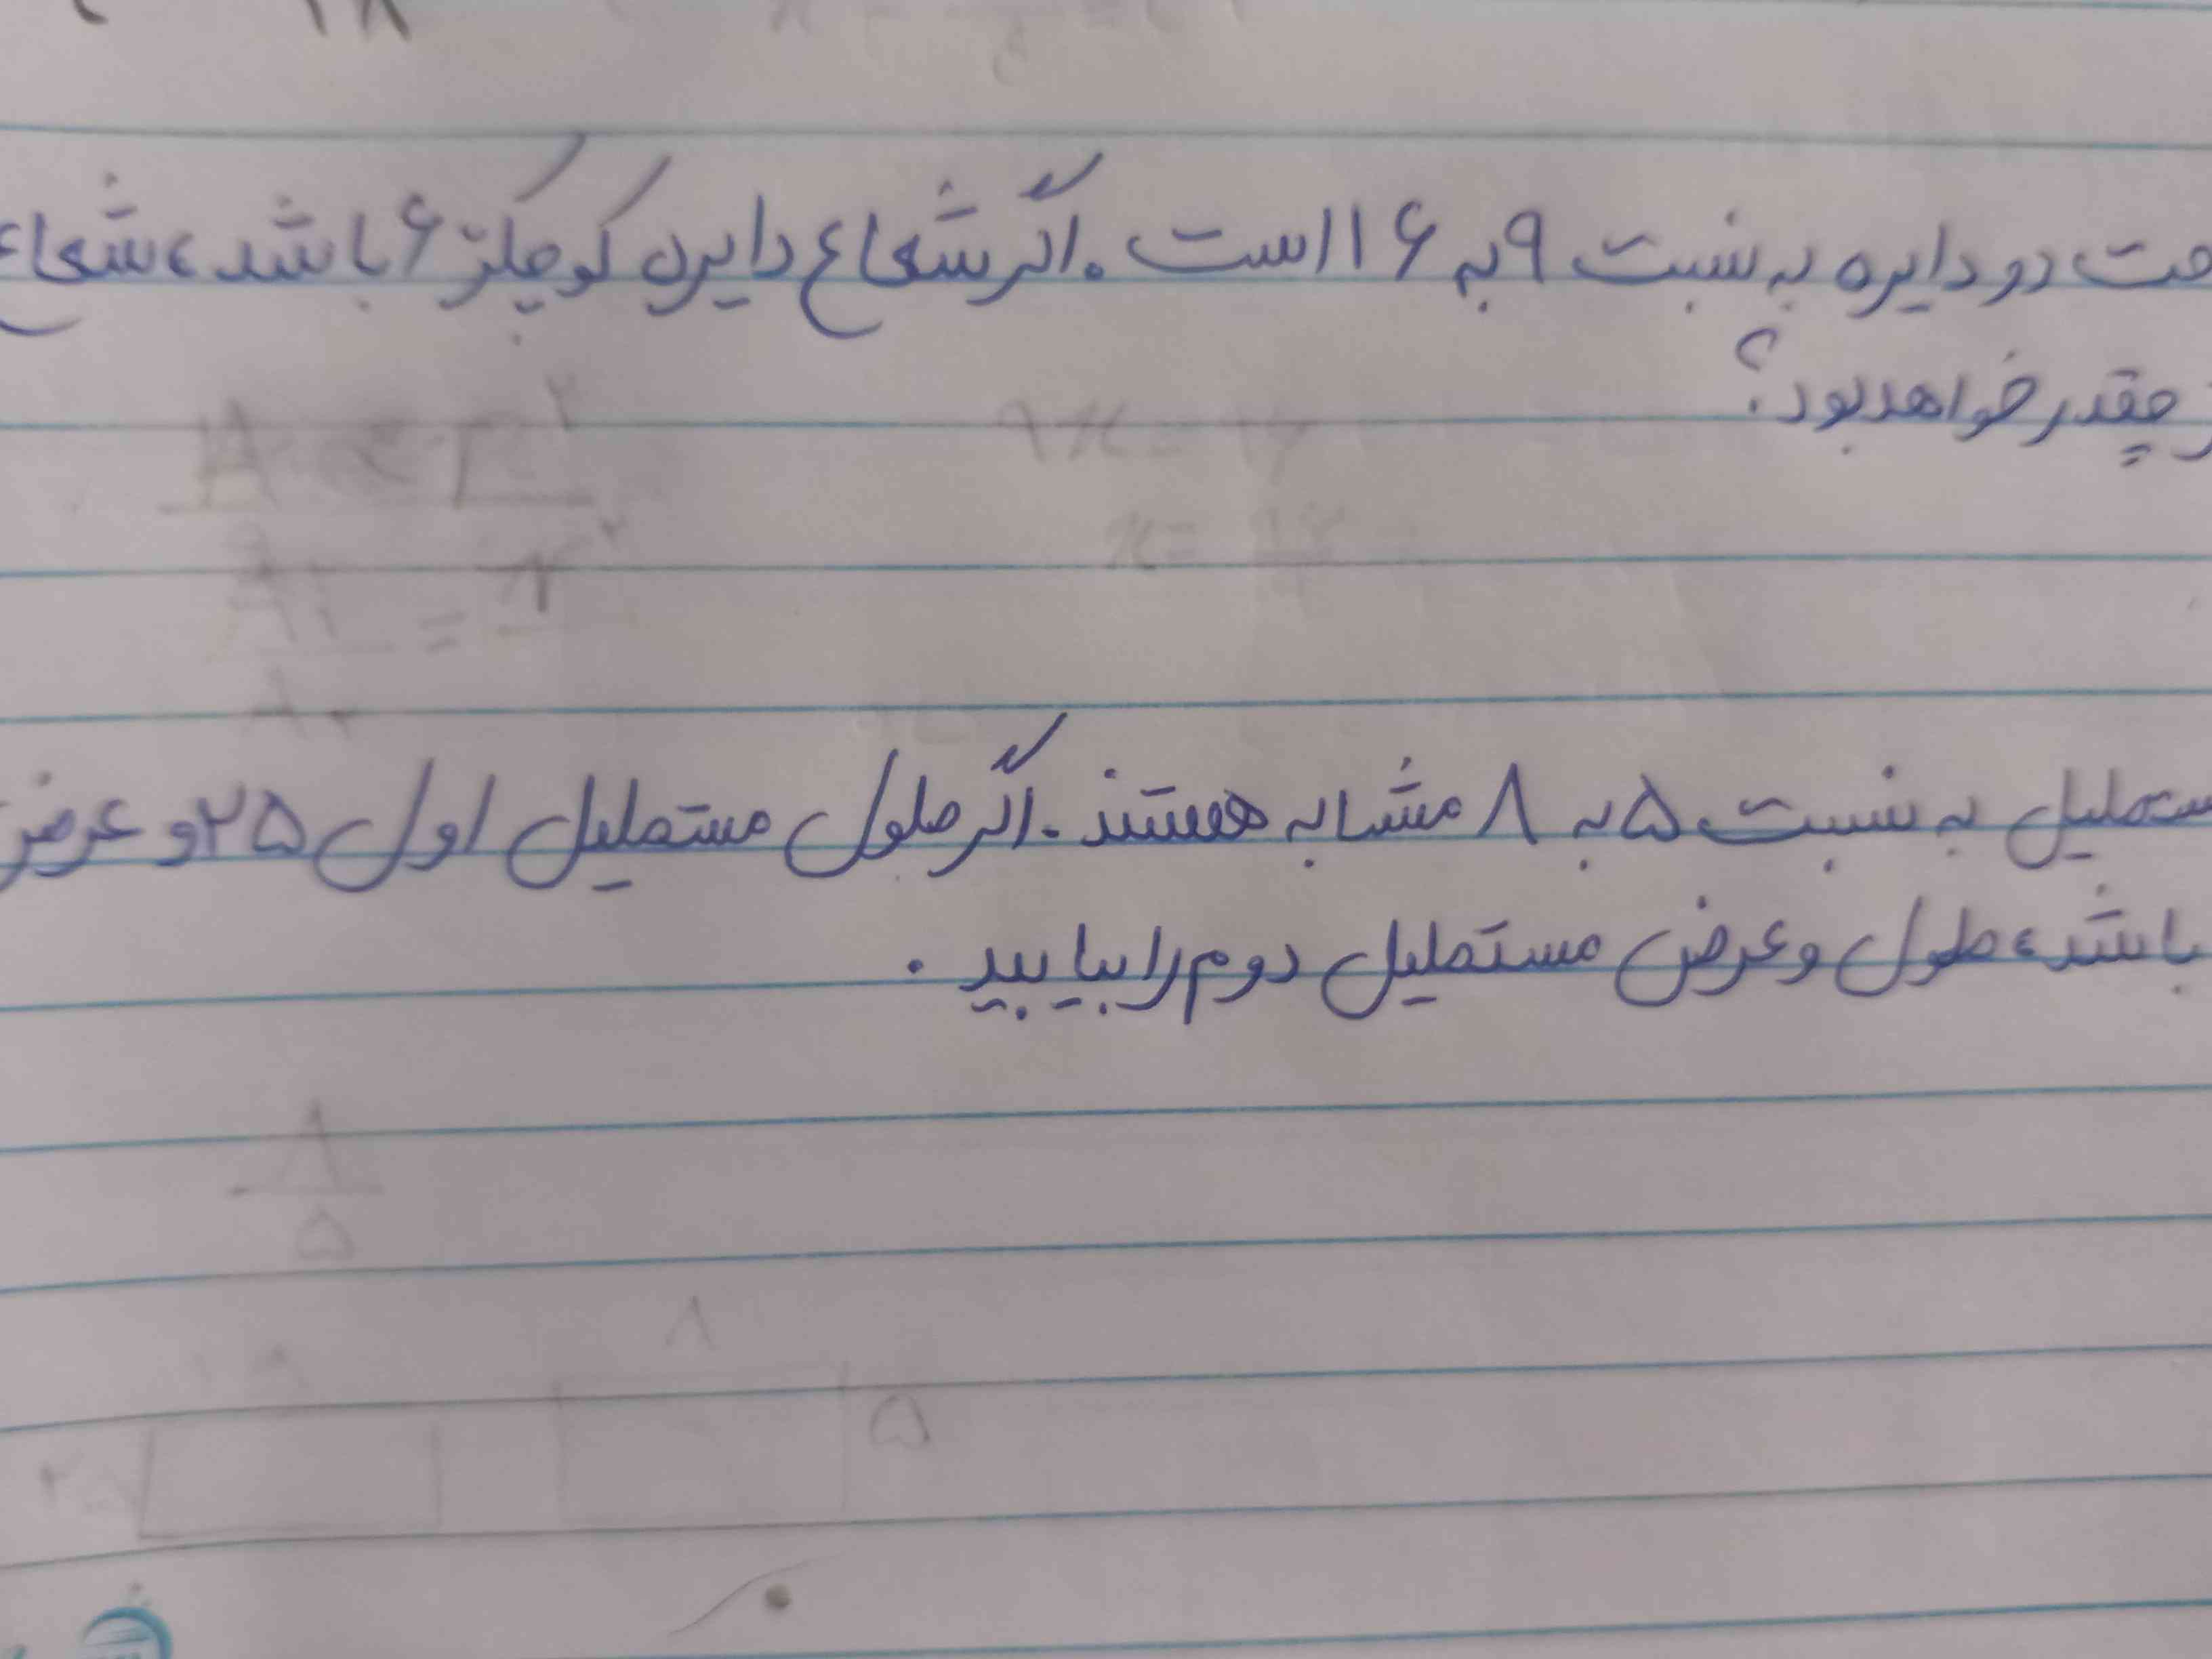 دو دایره به نسبت ۹ به ۱۶ است. اگر شعاع دایره کوچکتر ۶ باشد، شعاع
چقدر خواهد بود؟
A r²
۹x =
x =
= r²
به نسبت ۵ به ۸ متشابه هستند. اگر طول مستطیل اول ۲۵ و عرض
باشد، طول و عرض مستطیل دوم را بیابید.
۸
۵
۸
۵